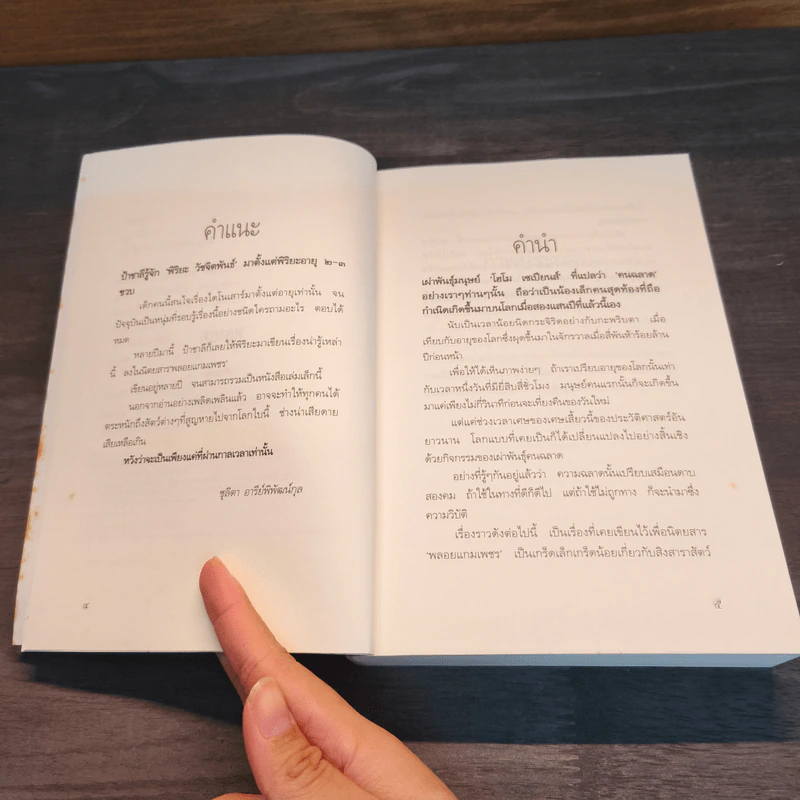 คำแนะ
ป้าชาลีรู้จัก 'พิริยะ วัชจิตพันธ์' มาตั้งแต่พิริยะอายุ ๒-๓
ขวบ
เด็กคนนี้สนใจเรื่องไดโนเสาร์มาตั้งแต่อายุเท่านั้น จน
ปัจจุบันเป็นหนุ่มที่รอบรู้เรื่องนี้อย่างชนิดใครถามอะไร ตอบได้
หมด
หลายปีมานี้ ป้าชาลีก็เลยให้พิริยะมาเขียนเรื่องน่ารู้เหล่า
นี้ ลงในนิตยสารพลอยแกมเพชร'
เขียนอยู่หลายปี จนสามารถรวมเป็นหนังสือเล่มเล็กนี้
นอกจากอ่านอย่างเพลิดเพลินแล้ว อาจจะทำให้ทุกคนได้
ตระหนักถึงสัตว์ต่างๆที่สูญหายไปจากโลกใบนี้ ช่างน่าเสียดาย
เสียเหลือเกิน
หวังว่าจะเป็นเพียงแค่ที่ผ่านกาลเวลาเท่านั้น
ชุลิตา อารีย์พิพัฒน์กุล
๔
คำนำ
เผ่าพันธุ์มนุษย์ 'โฮโม เซเปียนส์' ที่แปลว่า 'คนฉลาด'
อย่างเราๆท่านๆนั้น ถือว่าเป็นน้องเล็กคนสุดท้องที่ถือ
กำเนิดเกิดขึ้นมาบนโลกเมื่อสองแสนปีที่แล้วนี้เอง
นับเป็นเวลาน้อยนิดกระจิริดอย่างกับกะพริบตา เมื่อ
เทียบกับอายุของโลกซึ่งผุดขึ้นมาในจักรวาลเมื่อสี่พันห้าร้อยล้าน
ปีก่อนหน้า
เพื่อให้ได้เห็นภาพง่ายๆ ถ้าเราเปรียบอายุของโลกนั้นเท่า
กับเวลาหนึ่งวันที่มียี่สิบสี่ชั่วโมง มนุษย์คนแรกนั้นก็จะเกิดขึ้น
มาแค่เพียงไม่กี่วินาทีก่อนจะเที่ยงคืนของวันใหม่
แต่แค่ช่วงเวลาเศษของเศษเสี้ยวนี้ของประวัติศาสตร์อัน
ยาวนาน โลกแบบที่เคยเป็นก็ได้เปลี่ยนแปลงไปอย่างสิ้นเชิง
ด้วยกิจกรรมของเผ่าพันธุ์คนฉลาด
อย่างที่รู้ๆกันอยู่แล้วว่า ความฉลาดนั้นเปรียบเสมือนดาบ
สองคม ถ้าใช้ในทางที่ดีก็ดีไป แต่ถ้าใช้ไม่ถูกทาง ก็จะนำมาซึ่ง
ความวิบัติ
เรื่องราวดังต่อไปนี้ เป็นเรื่องที่เคยเขียนไว้เพื่อนิตยสาร
'พลอยแกมเพชร' เป็นเกร็ดเล็กเกร็ดน้อยเกี่ยวกับสิงสาราสัตว์
๕